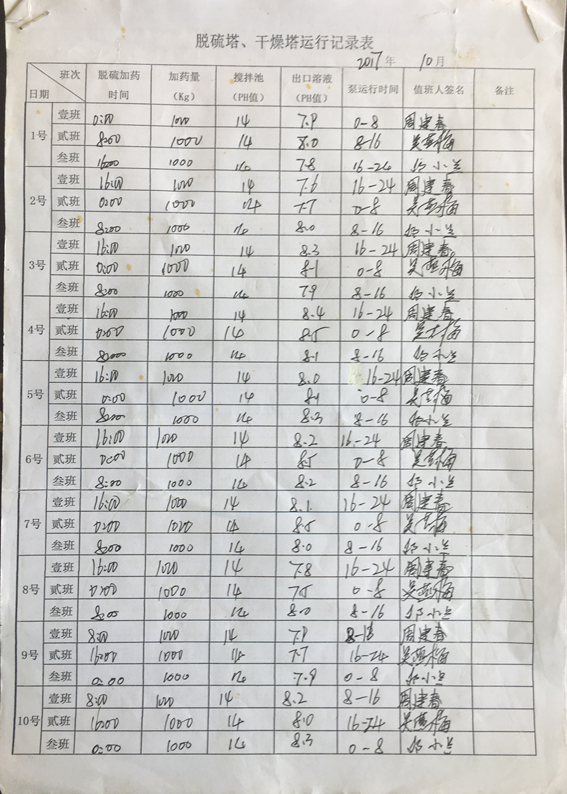 脱硫塔、干燥塔运行记录表
2017年 10月
班次 日期 脱硫加药时间 加药量(Kg) 搅拌池(PH值) 出口溶液(PH值) 泵运行时间 值班人签名 备注
1号 壹班 0:00 1000 14 7.9 0-8 周建春
贰班 8:00 1000 14 8.0 8-16
叁班 16:00 1000 14 7.8 16-24
2号 壹班 16:00 1000 14 7.6 16-24 周建春
贰班 0:00 1000 14 7.7 0-8
叁班 8:00 1000 14 8.0 8-16
3号 壹班 16:00 1000 14 8.3 16-24 周建春
贰班 0:00 1000 14 8.1 0-8
叁班 8:00 1000 14 7.9 8-16
4号 壹班 16:00 1000 14 8.4 16-24 周建春
贰班 0:00 1000 14 8.5 0-8
叁班 1000 14 8.1 8-16
5号 壹班 16:00 1000 14 8.0 16-24 周建春
贰班 0:00 1000 14 0-8
叁班 8:00 1000 14 8.3 8-16
6号 壹班 16:00 1000 14 8.2 16-24 周建春
贰班 0:00 1000 14 8.5 0-8
叁班 8:00 1000 14 8.2 8-16
7号 壹班 16:00 1000 14 8.1 16-24 周建春
贰班 0:00 1000 14 8.5 0-8
叁班 8:00 1000 14 8.0 8-16
8号 壹班 16:00 1000 14 7.8 16-24 周建春
贰班 0:00 1000 14 7.5 0-8
叁班 8:00 1000 14 8.0 8-16
9号 壹班 8:00 1000 14 7.9 周建春
贰班 16:00 1000 14 7.7 16-24
叁班 0:00 1000 14 7.9 0-8
10号 壹班 8:00 1000 14 8.2 8-16 周建春
贰班 16:00 1000 14 8.0 16-24
叁班 0:00 1000 14 8.3 0-8